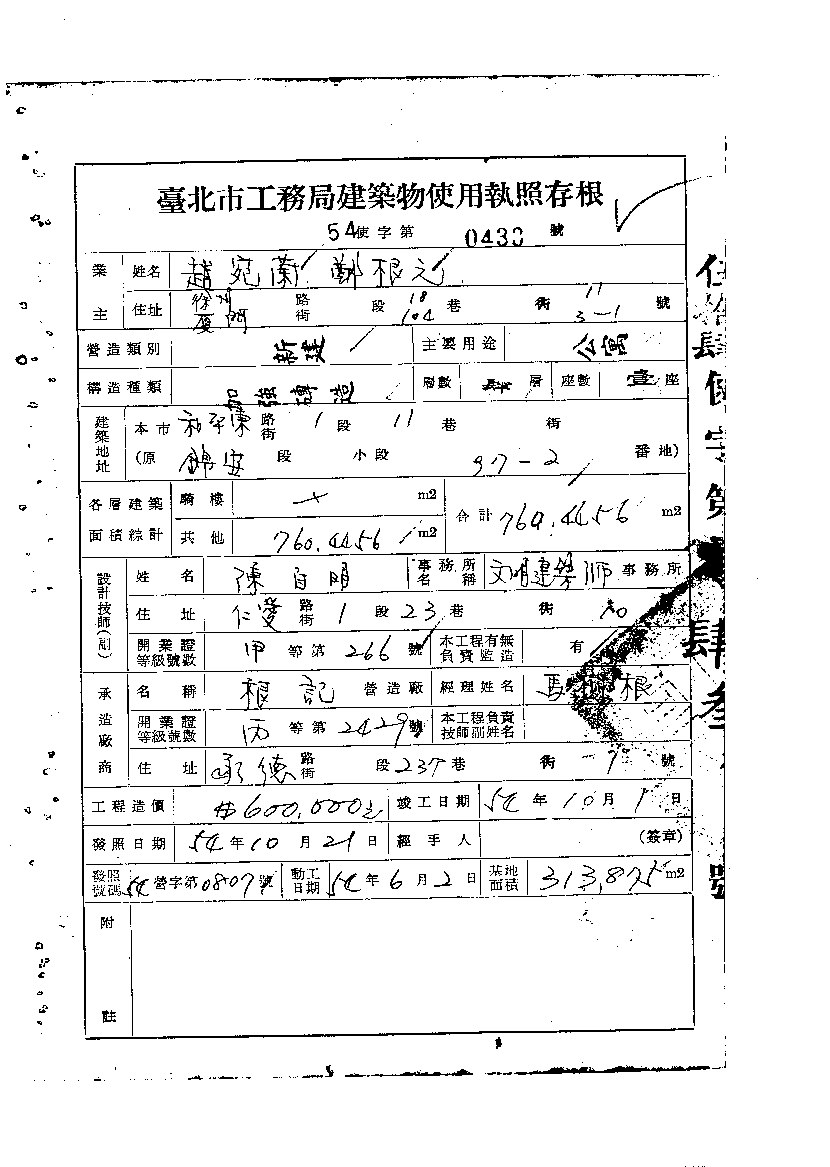 臺北市工務局建築物使用執照存根
54使字第 0430 號
業主 姓名 趙宛蘭 鄭根元
住址 徐州 廈門 路街 段 18 104 巷 街 11 3-1 號
營造類別 新建 主要用途 公寓
構造種類 加強磚造 層數 層 座數 壹 座
建築地址 本市 和平東 路街 1 段 11 巷 街
(原 錦安 段 小段 97-2 番地)
各層建築面積綜計 騎樓 m2 合計 760.4456 m2
其他 760.4456 m2
設計技師(副) 姓名 陳自明 事務所名稱 文明建築師 事務所
住址 仁愛 路街 1 段 23 巷 街 號
開業證等級號數 甲 等第 266 號 本工程有無負責監造 有
承造廠商 名稱 根記 營造廠 經理姓名 馬 根
開業證等級號數 丙 等第 2429 號 本工程負責技師副姓名
住址 承德 路街 段 237 巷 街 7 號
工程造價 #600,000元 竣工日期 54 年 10 月 1 日
發照日期 54 年 10 月 21 日 經手人 (簽章)
發照號碼 54 營字第 0807 號 動工日期 54 年 6 月 2 日 基地面積 313.875 m2
附註
伍拾肆使字第 肆參 號